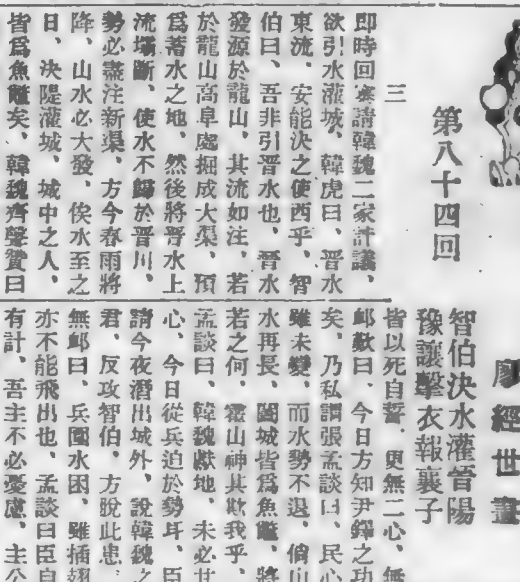 廖經世畫
智伯決水灌晉陽
豫讓擊衣報襄子
第八十四回
三
即時回寨請韓魏二家計議、
欲引水灌城、韓虎曰、晉水
東流、安能決之使西乎、智
伯曰、吾非引晉水也、晉水
發源於龍山、其流如注、若
於龍山高阜處掘成大渠、預
爲蓄水之地、然後將晉水上
流壩斷、使水不歸於晉川、
勢必盡注新渠、方今春雨將
降、山水必大發、俟水至之
日、決隄灌城、城中之人、
皆爲魚鼈矣、韓魏齊聲贊曰
皆以死自誓、更無二心、無
卹歎曰、今日方知尹鐸之功
矣、乃私謂張孟談曰、民心
雖未變、而水勢不退、倘山
水再長、闔城皆爲魚鼈、將
若之何、霍山神其欺我乎、
孟談曰、韓魏獻地、未必甘
心、今日從兵迫於勢耳、臣
請今夜潛出城外、說韓魏之
君、反攻智伯、方脫此患、
無卹曰、兵圍水困、雖插翅
亦不能飛出也、孟談曰臣自
有計、吾主不必憂慮、主公